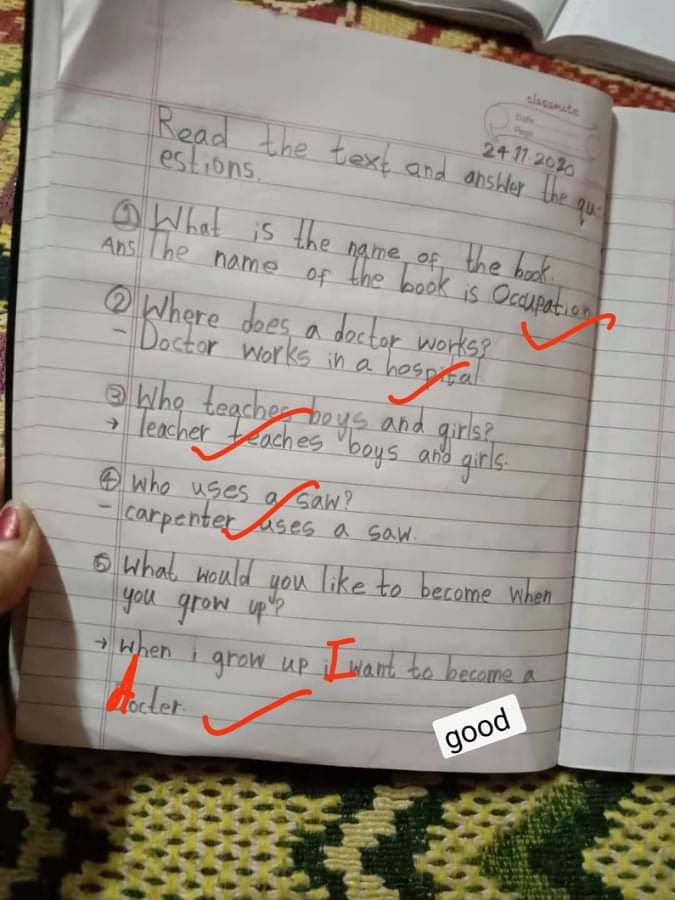 classmate
Date
Page
24.11.2020
Read the text and answer the qu-
estions.
① What is the name of the book.
Ans The name of the book is Occupation
② Where does a doctor works?
- Doctor works in a hospital
③ Who teaches boys and girls?
→ Teacher teaches boys and girls.
④ who uses a saw?
- carpenter uses a saw.
⑤ What would you like to become when
you grow up?
→ when i grow up i I want to become a
docter.
good